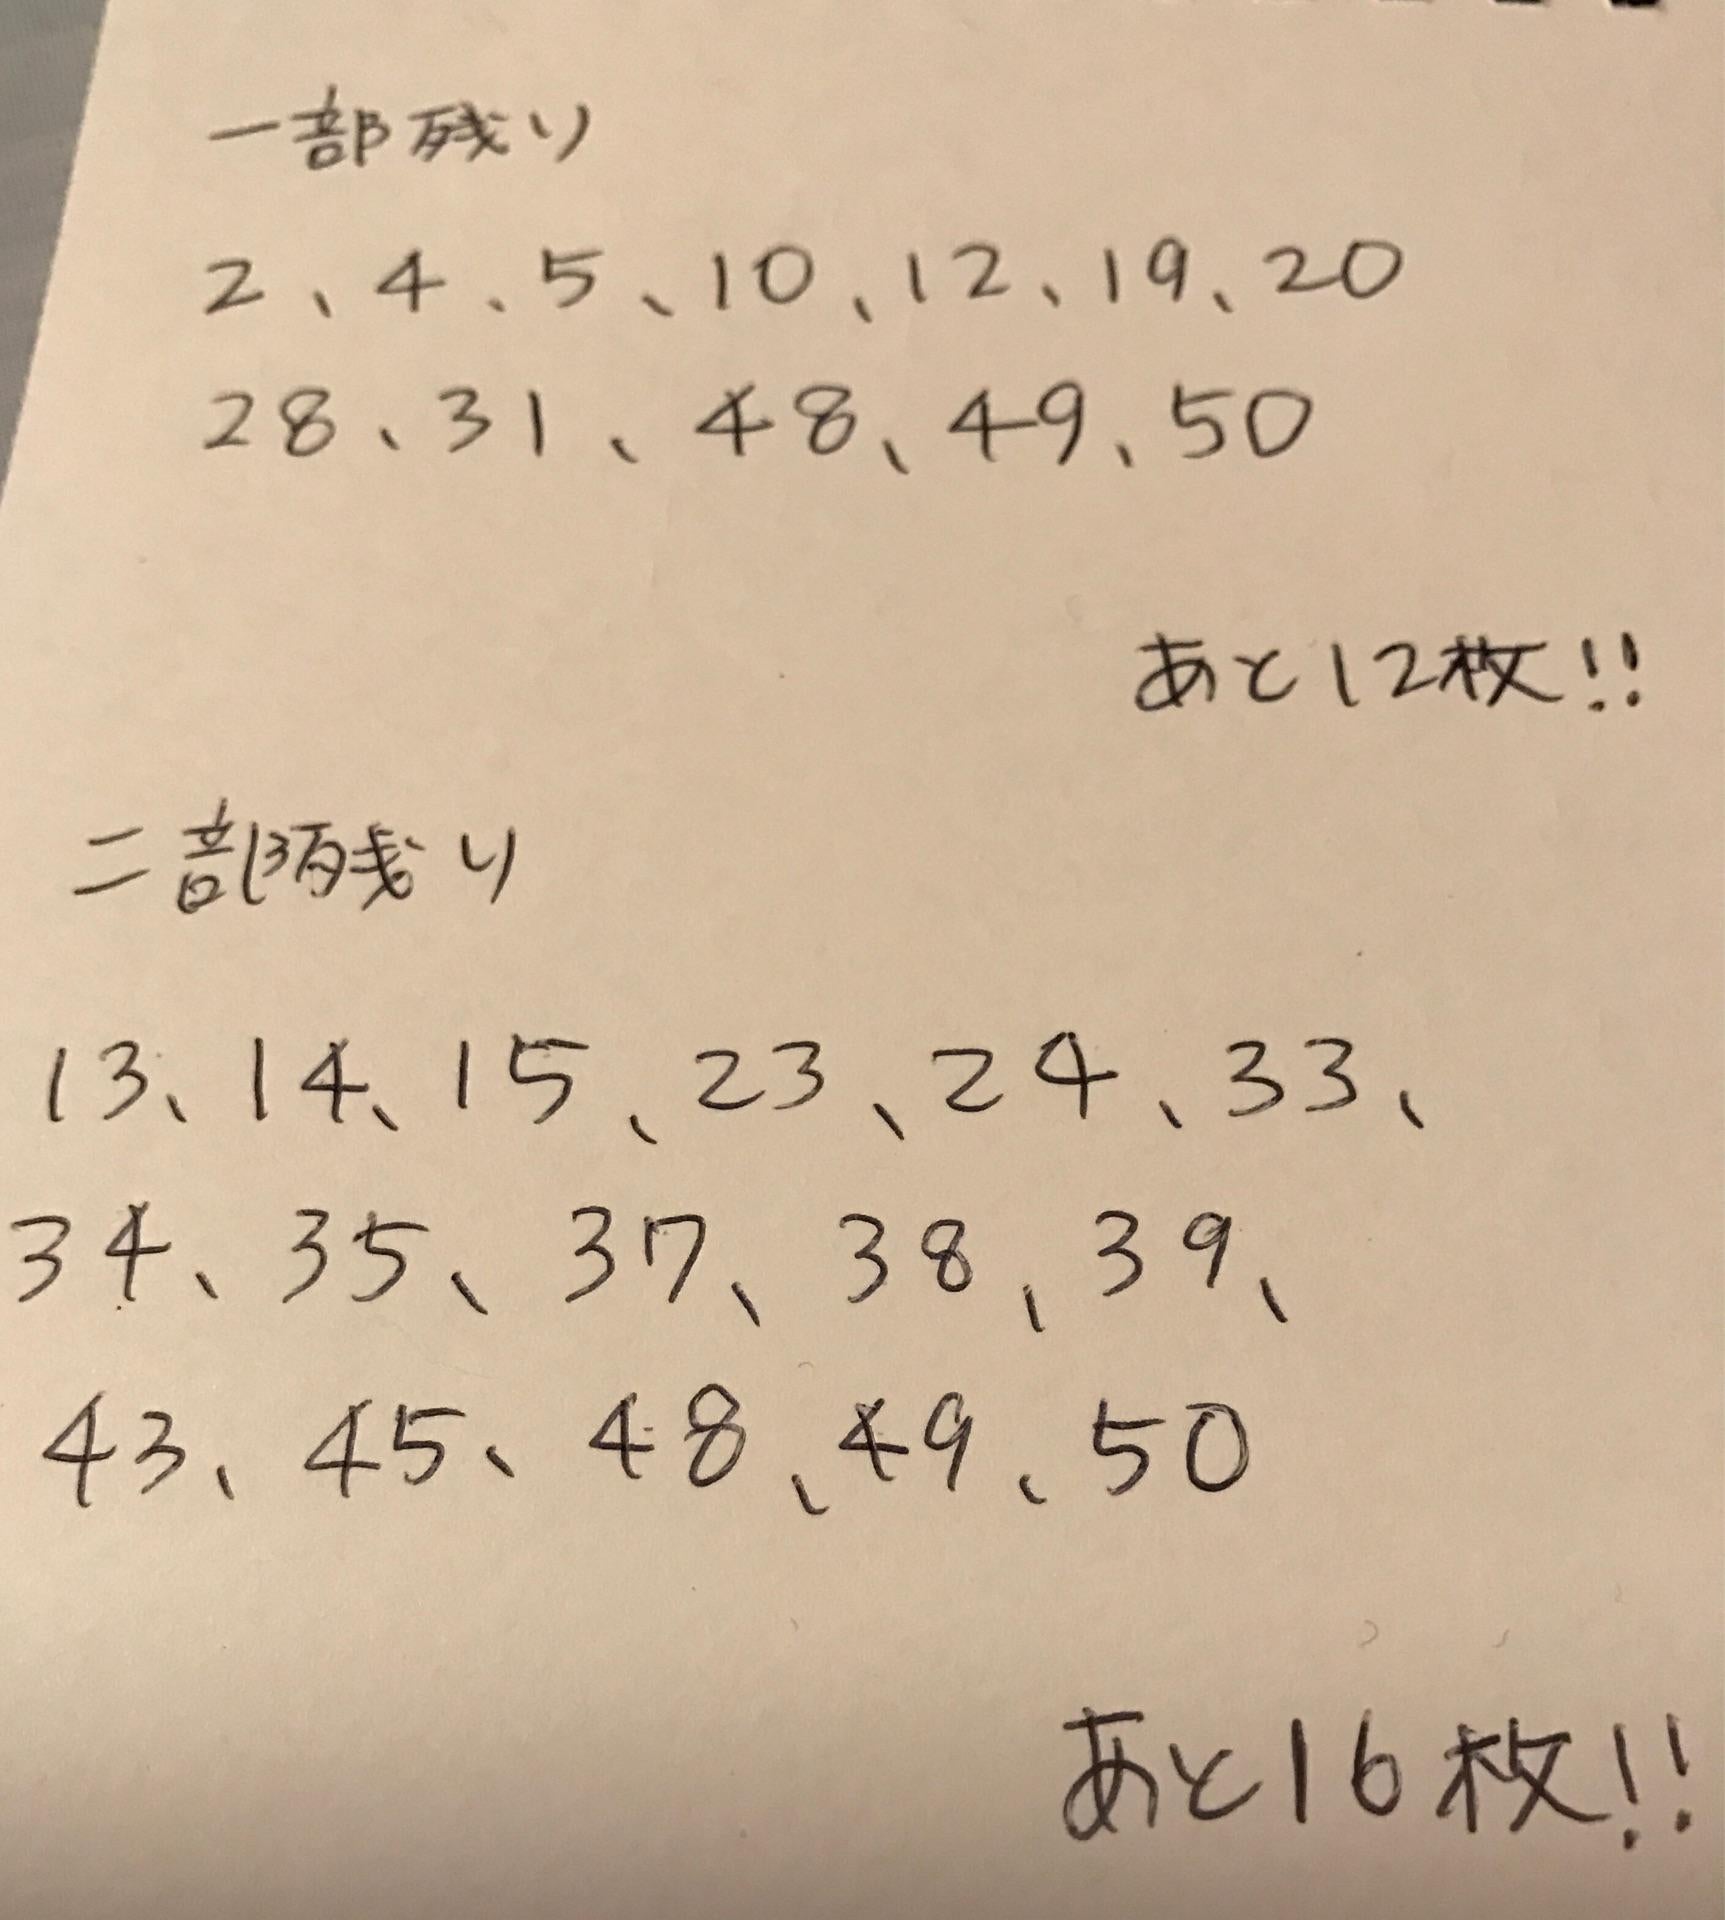 一部残り
2、4、5、10、12、19、20
28、31、48、49、50
あと12枚!!
二部残り
13、14、15、23、24、33、
34、35、37、38、39、
43、45、48、49、50
あと16枚!!